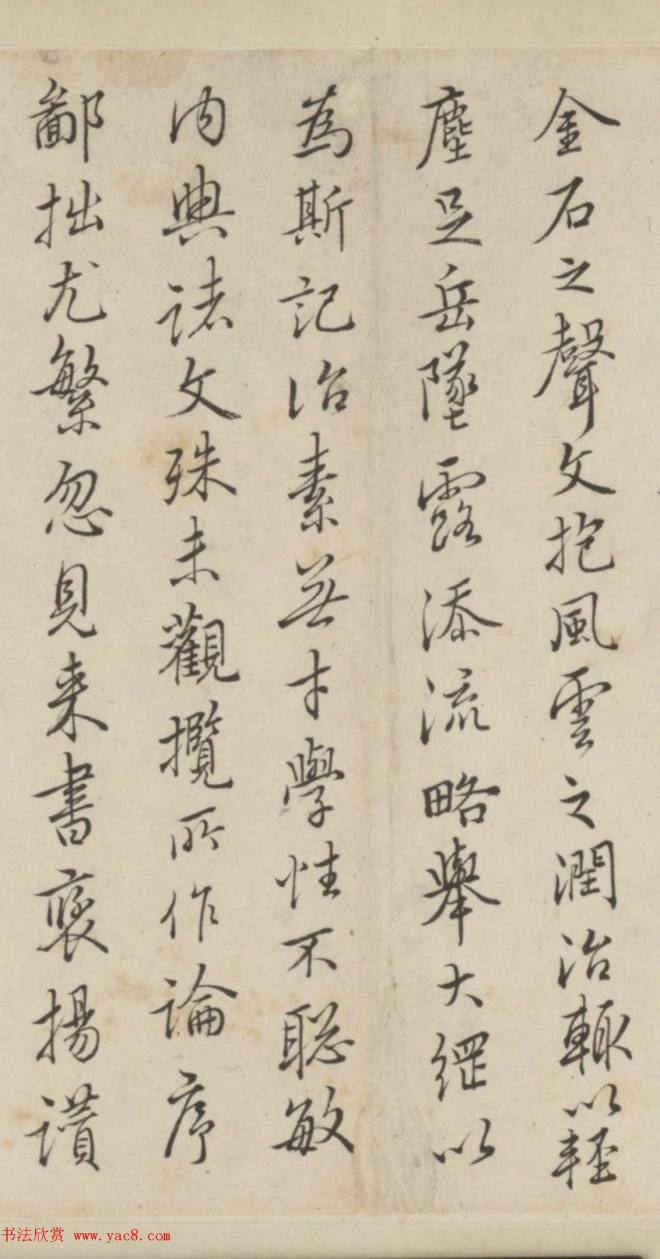 金石之聲文抱風雲之潤治輒以輕
塵足岳墜露添流略舉大綱以
為斯記治素無才學性不聰敏
內典諸文殊未觀攬所作論序
鄙拙尤繁忽見來書褒揚讃
书法欣赏 www.yac8.com